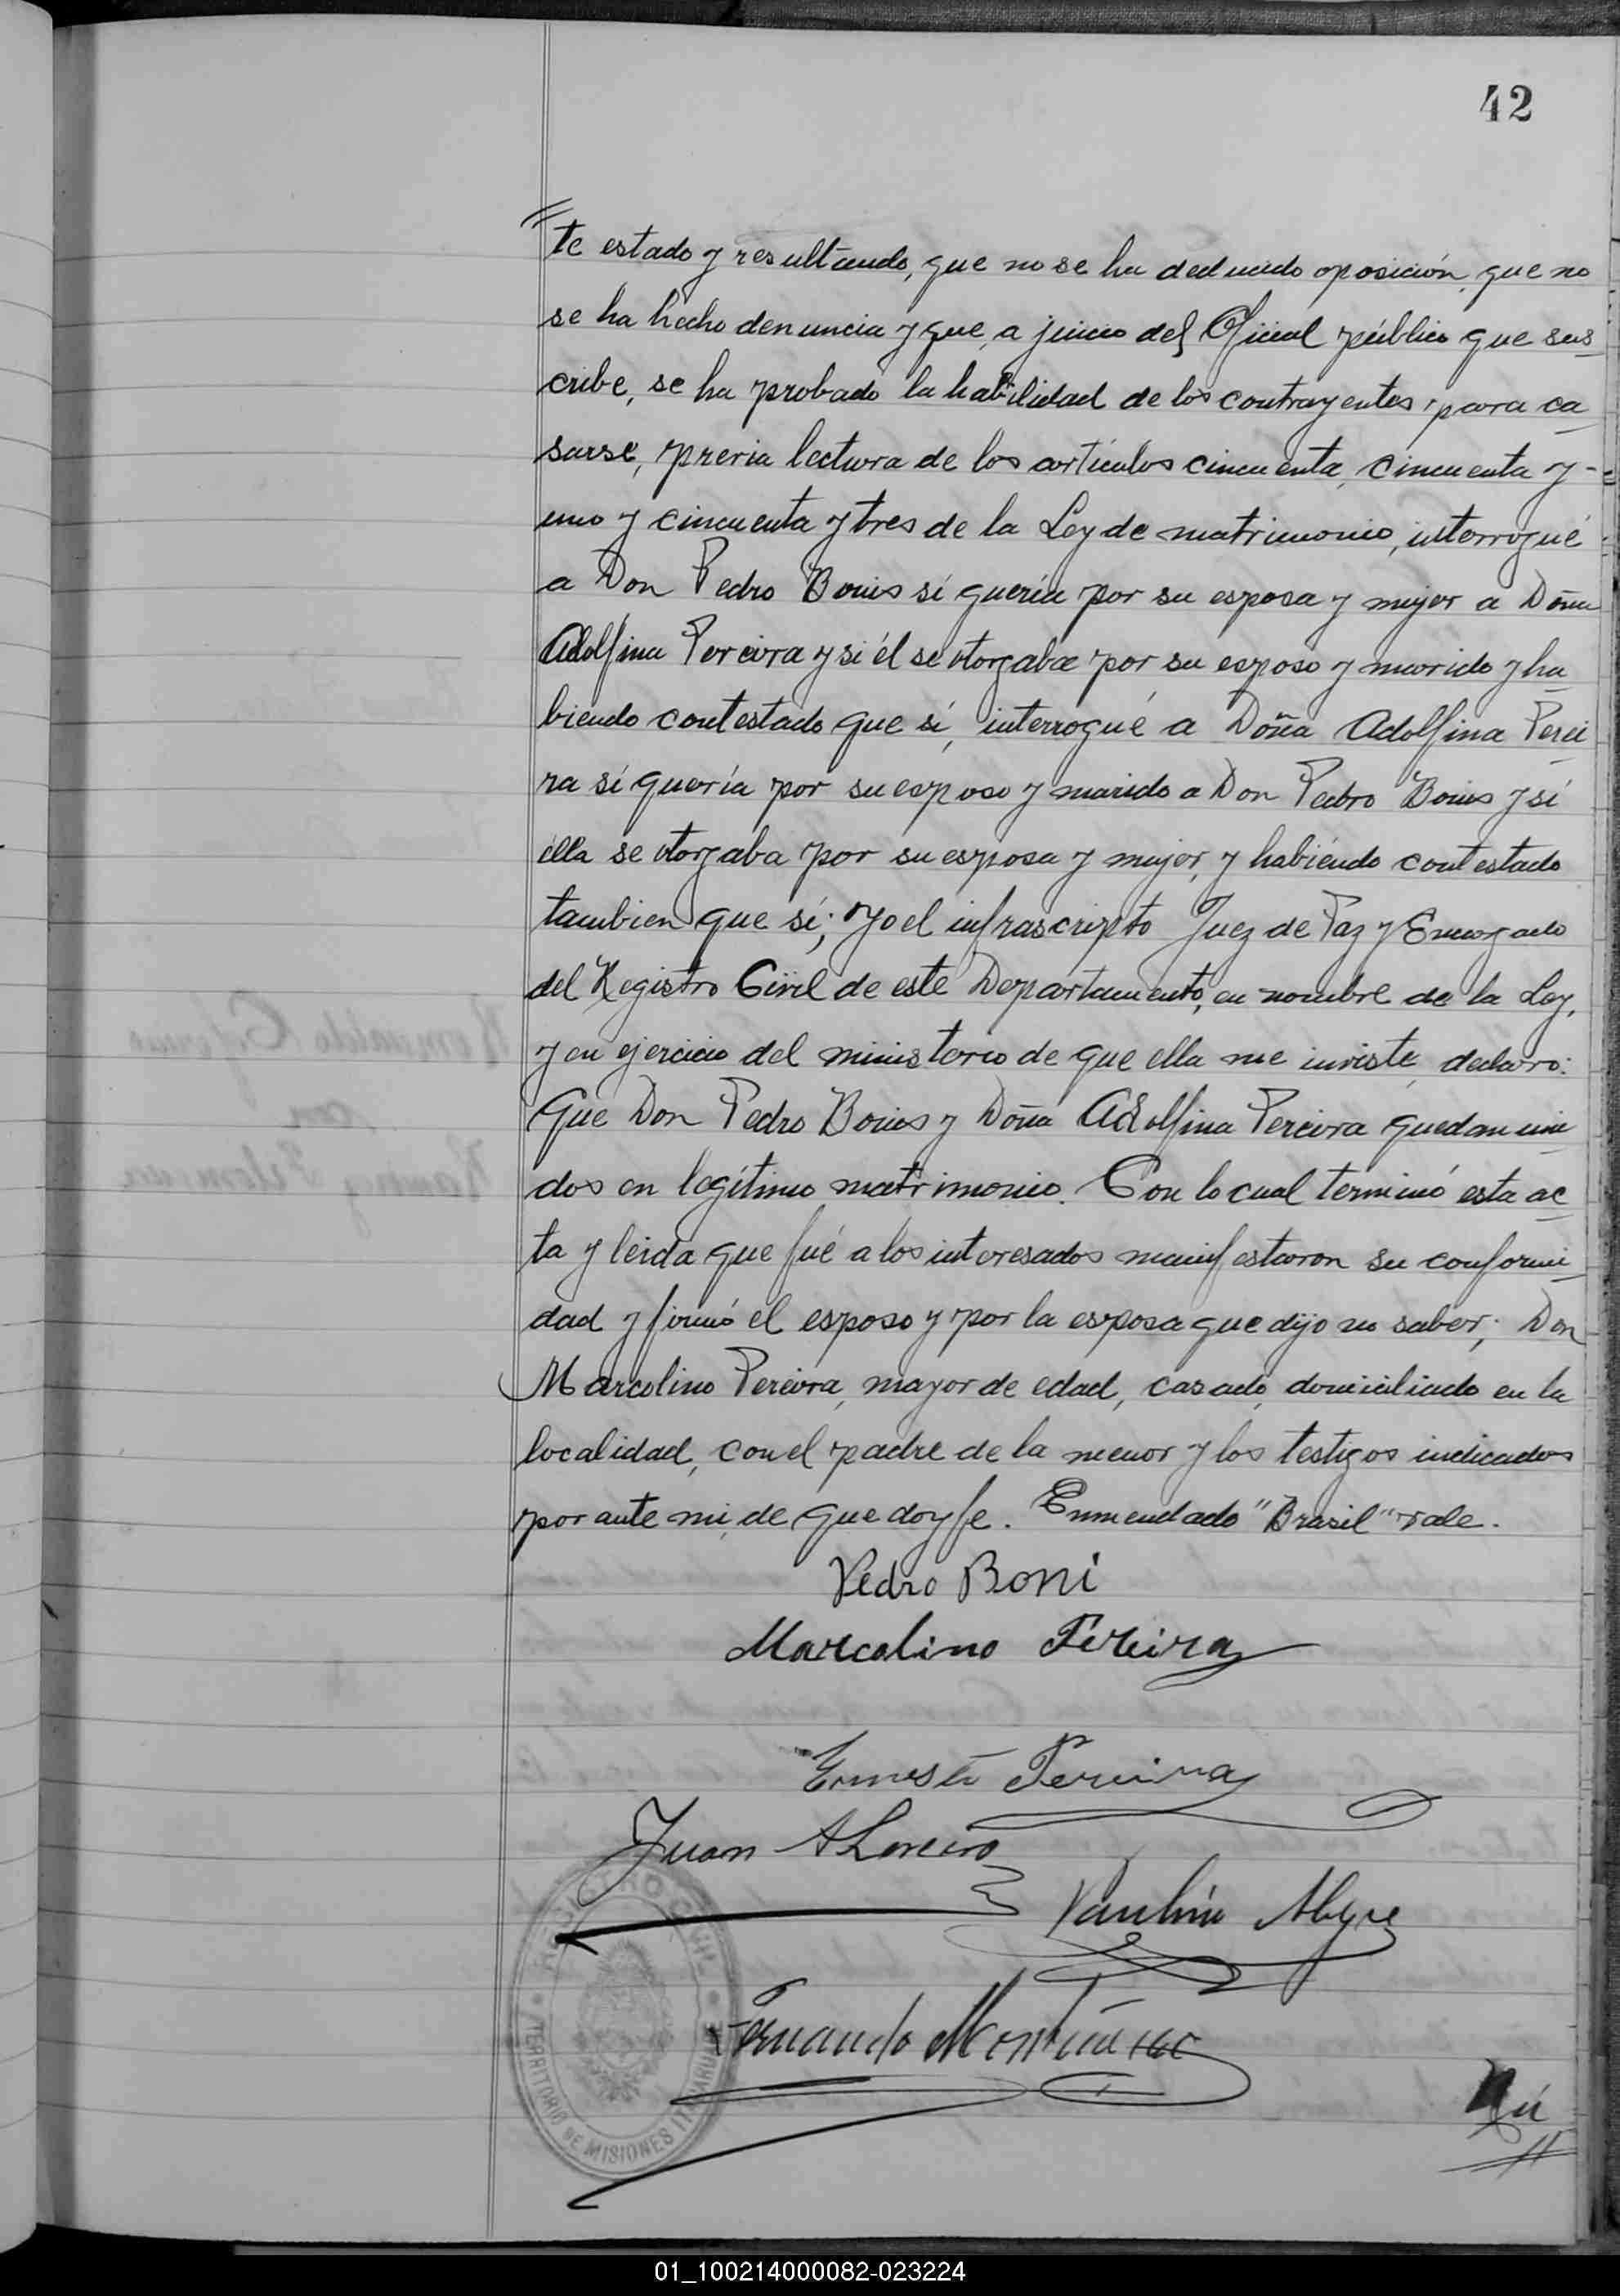 42
te estado y resultando, que no se ha deducido oposición, que no
se ha hecho denuncia y que, a juicio del Oficial público que sus
cribe, se ha probado la habilidad de los contrayentes para ca
sarse, previa lectura de los artículos cincuenta, cincuenta y -
uno y cincuenta y tres de la Ley de matrimonio, interrogué
a Don Pedro Bonis si quería por su esposa y mujer a Doña
Adolfina Pereira y si él se otorgaba por su esposo y marido y ha
biendo contestado que sí, interrogué a Doña Adolfina Perei
ra si quería por su esposo y marido a Don Pedro Bonis y si
ella se otorgaba por su esposa y mujer, y habiendo contestado
tambien que sí; Yo el infrascripto Juez de Paz y Encargado
del Registro Civil de este Departamento, en nombre de la Ley,
y en ejercicio del ministerio de que ella me inviste, declaro:
Que Don Pedro Bonis y Doña Adolfina Pereira quedan uni
dos en legítimo matrimonio. Con lo cual terminó esta ac
ta y leida que fué a los interesados manifestaron su conformi
dad y firmó el esposo y por la esposa que dijo no saber; Don
Marcolino Pereira, mayor de edad, casado, domiciliado en la
localidad, con el padre de la menor y los testigos indicados
por ante mi, de que doy fe. Enmendado "Brasil" vale.
Pedro Boni
Marcolino Pereira
Ernesto Pereira
Juan A Loreiro
Paulino Alegre
REGISTRO CIVIL
Fernando
TERRITORIO DE MISIONES
01_100214000082-023224